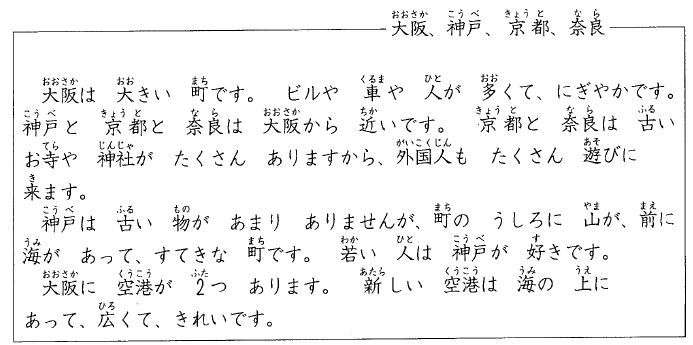 大阪、神戸、京都、奈良
大阪は 大きい 町です。 ビルや 車や 人が 多くて、にぎやかです。
神戸と 京都と 奈良は 大阪から 近いです。 京都と 奈良は 古い
お寺や 神社が たくさん ありますから、外国人も たくさん 遊びに
来ます。
神戸は 古い 物が あまり ありませんが、町の うしろに 山が、前に
海が あって、すてきな 町です。 若い 人は 神戸が 好きです。
大阪に 空港が 2つ あります。 新しい 空港は 海の 上に
あって、広くて、きれいです。